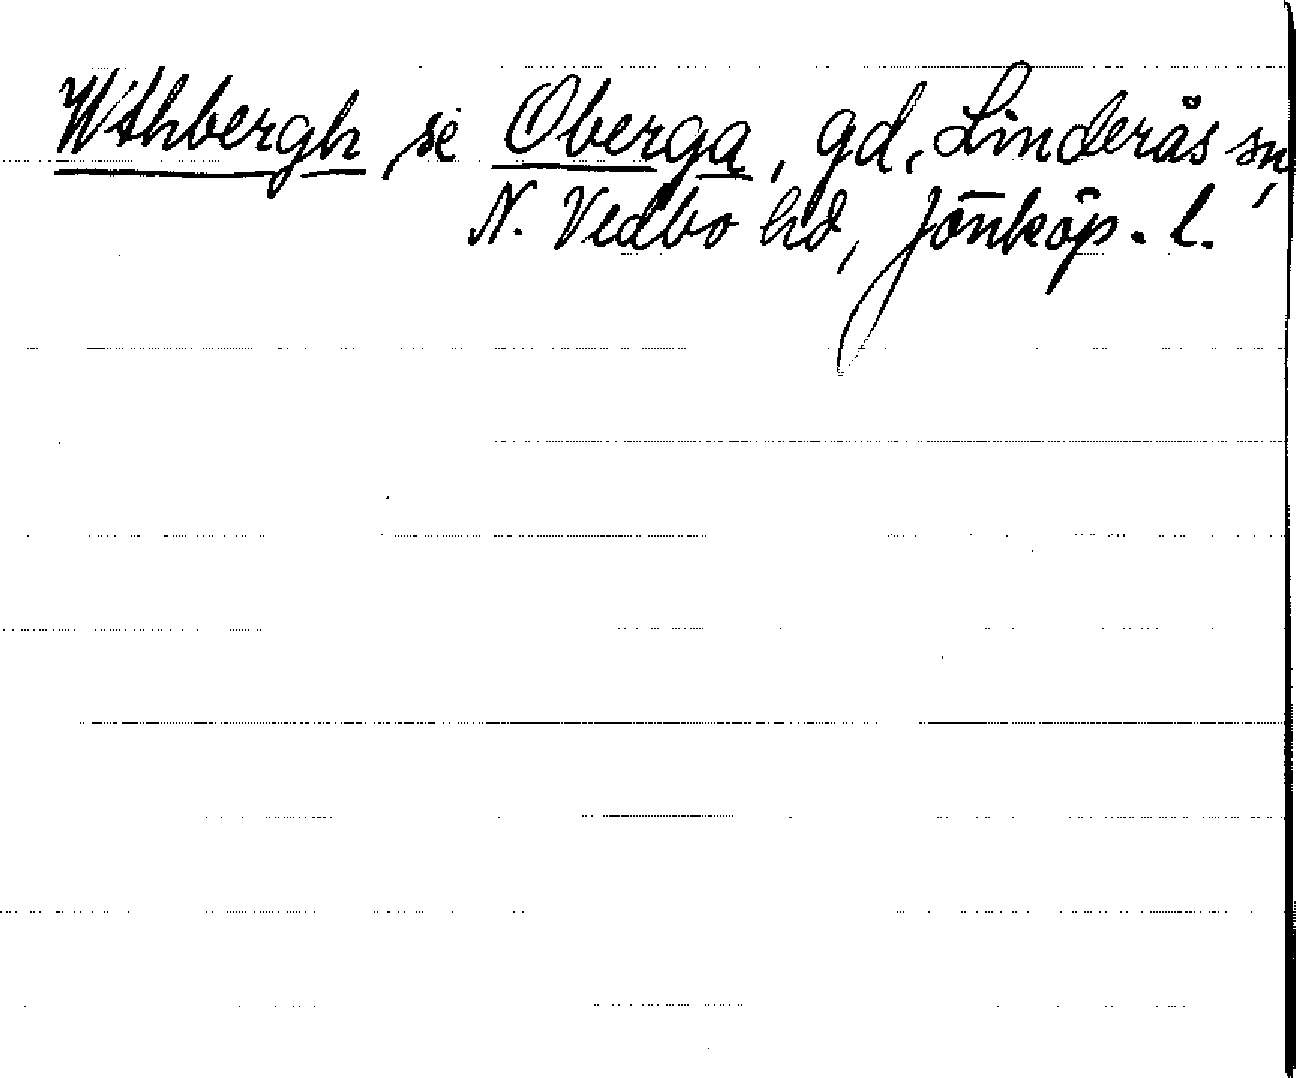 Wthbergh, se Oberga, gd, Linderås sn,
N. Vedbo hd, Jönköp. l.